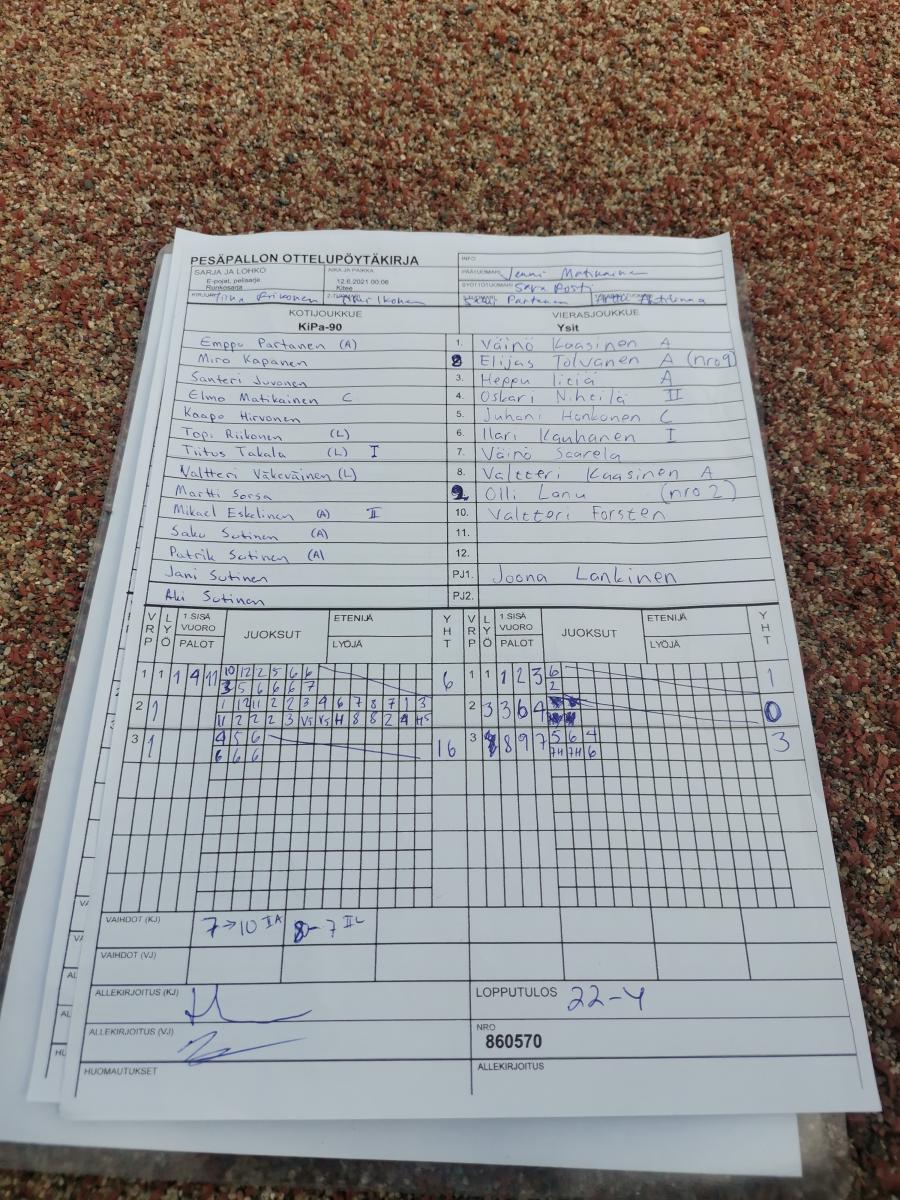 PESÄPALLON OTTELUPÖYTÄKIRJA
INFO
SARJA JA LOHKO
E-pojat, pelisarja
Runkosarja
AIKA JA PAIKKA
12.6.2021 00:06
Kitee
PÄÄTUOMARI Jenni Matikainen
SYÖTTÖTUOMARI Sara Posti
KIRJURI Erikonen
2-TUOMARI Ikonen
Partanen
KOTIJOUKKUE
KiPa-90
VIERASJOUKKUE
Ysit
Emppu Partanen (A) 1. Väinö Kaasinen A
Miro Kapanen 2 Elijas Tolvanen A (nro9)
Santeri Juvonen 3. Heppu A
Elmo Matikainen C 4. Oskari Niheilä II
Kaapo Hirvonen 5. Juhani Honkonen C
Topi Riikonen (L) 6. Ilari Kauhanen I
Tiitus Takala (L) I 7. Väinö Saarela
Valtteri Väkeväinen (L) 8. Valtteri Kaasinen A
Martti Sorsa 9. Olli Lanu (nro 2)
Mikael Eskelinen (A) II 10. Valtteri Forsten
Saku Sutinen (A) 11.
Patrik Sutinen (A) 12.
Jani Sutinen PJ1. Joona Lankinen
Aki Sutinen PJ2.
VRP LYÖ 1.SISÄ VUORO PALOT JUOKSUT ETENIJÄ LYÖJÄ YHT VRP LYÖ 1.SISÄ VUORO PALOT JUOKSUT ETENIJÄ LYÖJÄ YHT
1 1 1 4 11 10 12 2 5 6 6 6 1 1 1 2 3 6 1
3 5 6 6 6 7 2
2 1 1 12 11 2 2 3 4 6 7 8 7 1 3 2 3 3 6 4 0
11 2 2 2 3 V5 V5 H 8 8 2 4 H5
3 1 4 5 6 16 3 8 9 7 5 6 4 3
6 6 6 7H 7H 6
VAIHDOT (KJ) 7→10 IA 8-7 IIL
VAIHDOT (VJ)
ALLEKIRJOITUS (KJ)
LOPPUTULOS 22-4
ALLEKIRJOITUS (VJ)
NRO
860570
HUOMAUTUKSET
ALLEKIRJOITUS